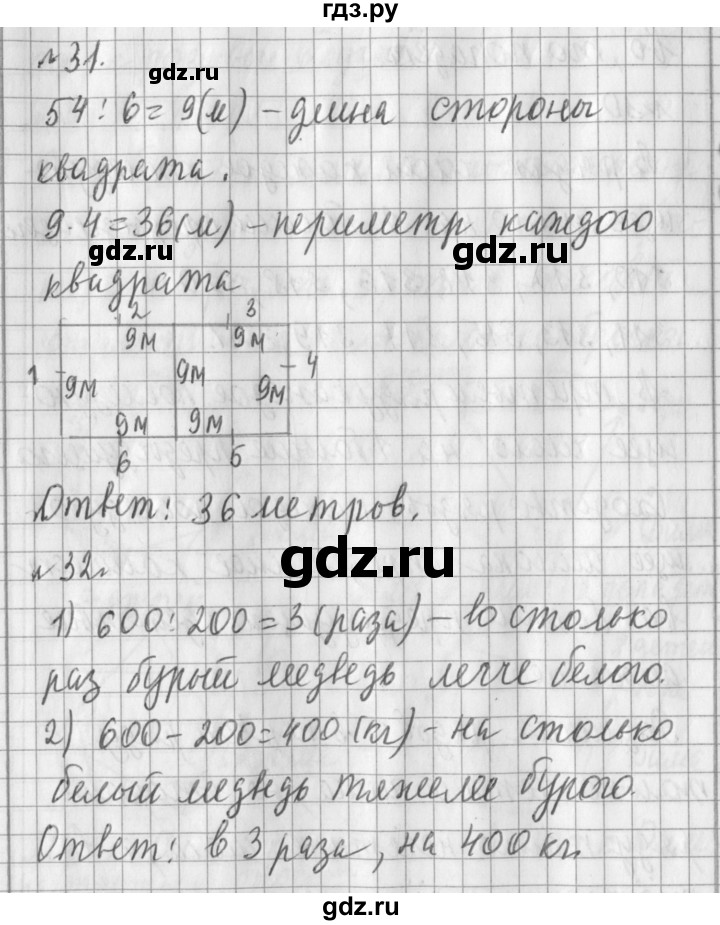 гдз.ру
№31.
gdz.ru
54:6=9(м) – длина стороны
квадрата.
9·4=36(м) – периметр каждого
gdz.ru
gdz.ru
квадрата
2 3
9м 9м
1 9м 9м 9м 4
9м 9м
6 5
Ответ: 36 метров.
gdz.ru
№32.
1) 600:200=3(раза) – во столько
раз бурый медведь легче белого.
2) 600-200=400(кг) – на столько
gdz.ru
белый медведь тяжелее бурого.
Ответ: в 3 раза, на 400 кг.
gdz.ru